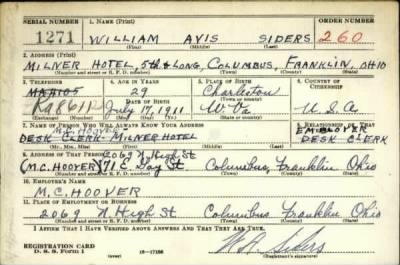 SERIAL NUMBER 1. NAME (Print) ORDER NUMBER
1271 WILLIAM AVIS SIDERS 260
(First) (Middle) (Last)
2. ADDRESS (Print)
MILNER HOTEL, 5th & LONG, COLUMBUS, FRANKLIN, OHIO
(Number and street or R. F. D. number) (Town) (County) (State)
3. TELEPHONE 4. AGE IN YEARS 5. PLACE OF BIRTH 6. COUNTRY OF CITIZENSHIP
29 Charleston
DATE OF BIRTH (Town or county)
July 17, 1911 W. Va U.S.A
(Mo.) (Day) (Yr.) (State or country)
7. NAME OF PERSON WHO WILL ALWAYS KNOW YOUR ADDRESS 8. RELATIONSHIP OF THAT PERSON
M.C. HOOVER EMPLOYER
DESK CLERK - MILNER HOTEL DESK CLERK
9. ADDRESS OF THAT PERSON 2069 N High St
(M.C. HOOVER) 71 E. Columbus, Franklin Ohio
(Number and street or R. F. D. number) (Town) (County) (State)
10. EMPLOYER'S NAME
M.C. HOOVER
11. PLACE OF EMPLOYMENT OR BUSINESS
2069 N High St Columbus Franklin Ohio
(Number and street or R. F. D. number) (Town) (County) (State)
I AFFIRM THAT I HAVE VERIFIED ABOVE ANSWERS AND THAT THEY ARE TRUE.
REGISTRATION CARD
D. S. S. Form 1 (over) 16-17105 W A Siders
(Registrant's signature)